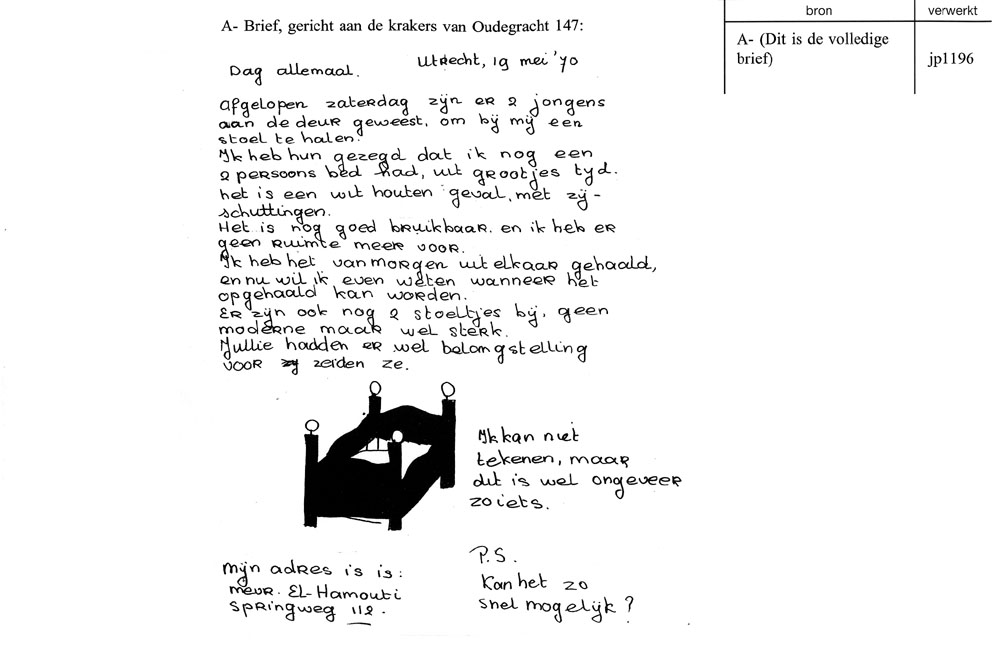 A- Brief, gericht aan de krakers van Oudegracht 147:
Utrecht, 19 mei '70
Dag allemaal.
Afgelopen zaterdag zijn er 2 jongens
aan de deur geweest, om bij mij een
stoel te halen.
Ik heb hun gezegd dat ik nog een
2 persoons bed had, uit grootjes tyd.
het is een wit houten geval, met zij-
schuttingen.
Het is nog goed bruikbaar. en ik heb er
geen ruimte meer voor.
Ik heb het vanmorgen uit elkaar gehaald,
en nu wil ik even weten wanneer het
opgehaald kan worden.
Er zijn ook nog 2 stoeltjes bij, geen
moderne maar wel sterk.
Jullie hadden er wel belangstelling
voor zeiden ze.
Ik kan niet
tekenen, maar
dit is wel ongeveer
zoiets.
Mijn adres is is:
mevr. El-Hamouti
Springweg 112.
P.S.
Kan het zo
snel mogelijk?
bron
verwerkt
A- (Dit is de volledige
brief)
jp1196